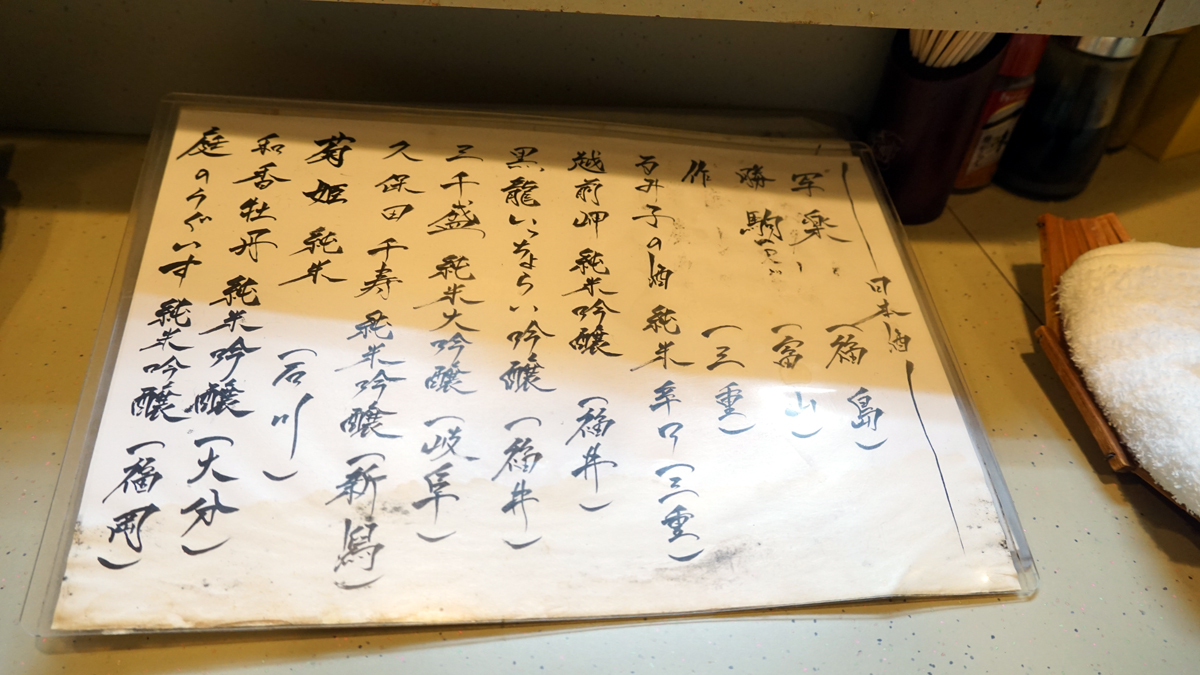 日本酒
写楽 (福島)
勝駒 (富山)
作 (三重)
るみ子の酒 純米 辛口 (三重)
越前岬 純米吟醸 (福井)
黒龍いっちょらい 吟醸 (福井)
三千盛 純米大吟醸 (岐阜)
久保田 千寿 純米吟醸 (新潟)
菊姫 純米 (石川)
和香牡丹 純米吟醸 (大分)
庭のうぐいす 純米吟醸 (福岡)